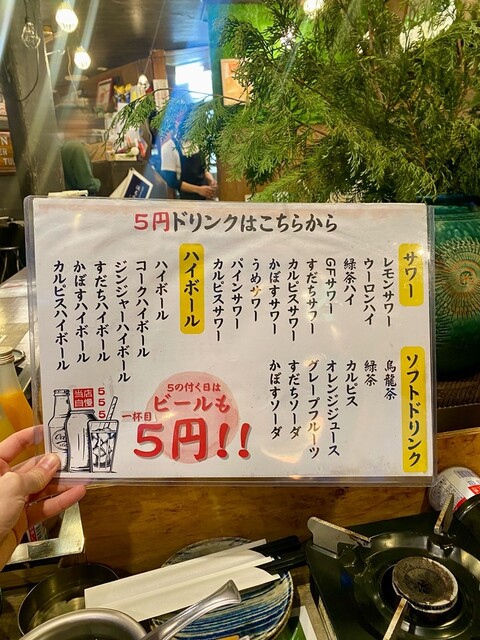 5円ドリンクはこちらから
サワー
レモンサワー
ウーロンハイ
緑茶ハイ
GFサワー
すだちサワー
カルピスサワー
かぼすサワー
うめサワー
パインサワー
カルピスサワー
ハイボール
ハイボール
コークハイボール
ジンジャーハイボール
すだちハイボール
かぼすハイボール
カルピスハイボール
ソフトドリンク
烏龍茶
緑茶
カルピス
オレンジジュース
グレープフルーツ
すだちソーダ
かぼすソーダ
5の付く日は
ビールも
一杯目
5円!!
当店
自慢
5
5
5